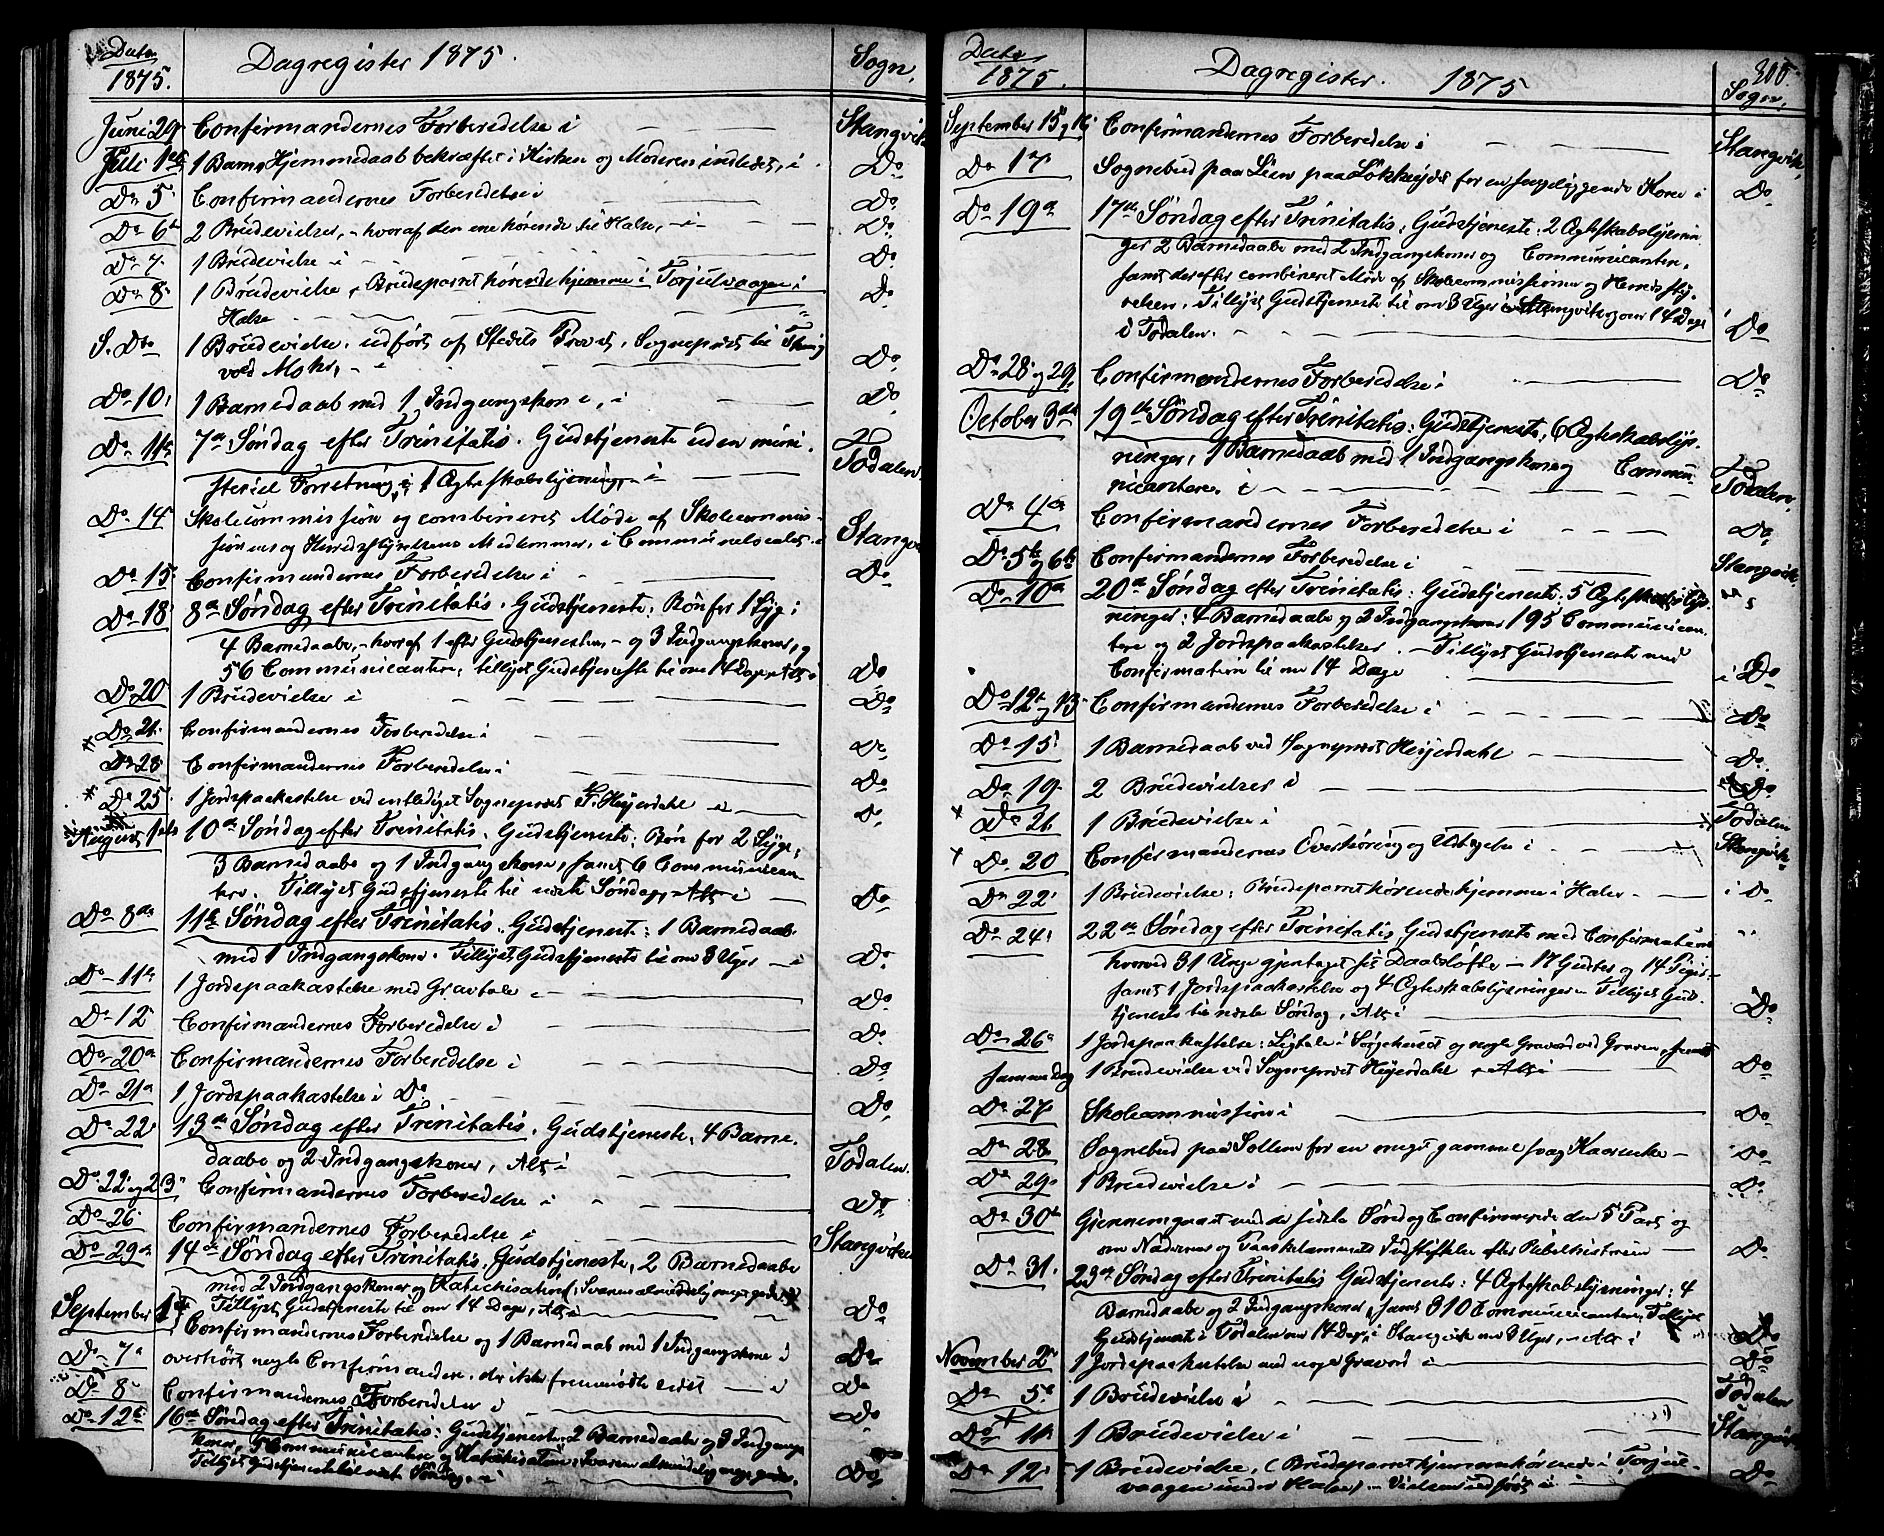 Dato
1875.
Dagregister 1875.
Sogn.
Juni 29 Confirmandernes Forberedelse i Stangvik
Juli 1ste 1 Barns Hjemmedaab bekræftet i Kirken og Moderen indledet, i Do
Do 5 Confirmandernes Forberedelse i Do
Do 6te 2 Brudevielser, - hvoraf den ene hørende til Halse, - i Do
Do 7. 1 Brudevielse i Do
Do 8. 1 Brudevielse, Brudeparret hørende hjemme i Torjulvaagen i
Halse
S. Dto 1 Brudevielse, udført af Stedets Provst, Sognepræst til Thing
vold Mohr, - i Do
Do 10. 1 Barnedaab med 1 Indgangskone, i Do
Do 11te 7de Søndag efter Trinitatis. Gudstjeneste uden mini-
steriel Forretning; 1 Ægteskabslysning, - i Todalen
Do 14 Skolecommission og combineret Møde af Skolecommis-
sionens og Herredsstyrelsens Medlemmer, i Communelocalet i Stangvik
Do 15. Confirmandernes Forberedelse i Do
Do 18. 8de Søndag efter Trinitatis. Gudstjeneste: Bøn for 1 Syg;
4 Barnedaabe, - hvoraf 1 efter Gudstjenesten, - og 3 Indgangskoner, og
56 Communicantere; tillyst Gudstjeneste til om 14 Dage, Alt i Do
Do 20 1 Brudevielse i Do
Do 21. Confirmandernes Forberedelse i Do
Do 28 Confirmandernes Forberedelse i Do
Do 25. 1 Jordspaakastelse ved entlediget Sognepræst F. Heyerdahl i Do
August 1ste 10de Søndag efter Trinitatis. Gudstjeneste: Bøn for 2 Syge;
3 Barnedaabe og 1 Indgangskone, samt 6 Communican-
tere. Tillyst Gudstjeneste til næste Søndag, Alt i Do
Do 8de 11te Søndag efter Trinitatis. Gudstjeneste: 1 Barnedaab
med 1 Indgangskone. Tillyst Gudstjeneste til om 3 Uger i Do
Do 11te 1 Jordspaakastelse med Gravtale i Do
Do 12 Confirmandernes Forberedelse i Do
Do 20de Confirmandernes Forberedelse i Do
Do 21de 1 Jordspaakastelse i Do. Do
Do 22 13de Søndag efter Trinitatis. Gudstjeneste, 4 Barne-
daabe og 2 Indgangskoner, Alt i Todalen
Do 22 og 23 Confirmandernes Forberedelse i Do
Do 26 Confirmandernes Forberedelse i Stangvik
Do 29de 14de Søndag efter Trinitatis. Gudstjeneste, 2 Barnedaabe
med 2 Indgangskoner og Katechisation, Svarene almindelig meget gode.
Tillyst Gudstjeneste til om 14 Dage, Alt i Do
September 1ste Confirmandernes Forberedelse og 1 Barnedaab med 1 Indgangskone i
Do 7de overhørt nogle Confirmander, der ikke fremmødte sidst i Do
Do 8. Confirmandernes Forberedelse i Do
Do 12te 16de Søndag efter Trinitatis: Gudstjeneste, 2 Barnedaabe og 3 Indgangs-
koner, 5 Communicantere og Katechisation, Svarene almindelig meget gode.
Tillyst Gudstjeneste til næste Søndag, i Do
Dato
1875.
Dagregister. 1875
205.
Sogn.
September 15 og 16 Confirmandernes Forberedelse i Stangvik
Do 17. Sognebud paa Lien paa Løkkeiet for en sengeliggende Kone i Do
Do 19de 17de Søndag efter Trinitatis, Gudstjeneste. 2 Ægteskabslysnin
ger 2 Barnedaabe med 2 Indgangskoner og Communicantere,
samt derefter combineret Møde af Skolecommissionen og Herredssty-
relsen. Tillyst Gudstjeneste til om 3 Uger i Stangvik og om 14 Dage
i Todalen. Do
Do 28 og 29. Confirmandernes Forberedelse i Do
October 3die 19de Søndag efter Trinitatis: Gudstjeneste, 6 Ægteskabslys-
ninger, 1 Barnedaab med 1 Indgangskone og Commun
nicantere i Todalen,
Do 4de Confirmandernes Forberedelse i Do
Do 5te og 6te Confirmandernes Forberedelse i Stangvik
Do 10de 20de Søndag efter Trinitatis: Gudstjeneste: 5 Ægteskabslys-
ninger: 4 Barnedaabe og 2 Indgangskoner 195 Communican-
tere og 2 Jordspaakastelser. - Tillyst Gudstjeneste med
Confirmation til om 14 Dage i Do
Do 12te og 13. Confirmandernes Forberedelse i Do
Do 15. 1 Barnedaab ved Sognepræst Heyerdahl Do
Do 19. 2 Brudevielser i Do
Do 21. 1 Brudevielse i Todalen
Do 20 Confirmandernes Overhøring og Udtagelse i Stangvik
Do 22. 1 Brudevielse; Brudeparret hørende hjemme i Halse i Do
Do 24. 22de Søndag efter Trinitatis, Gudstjeneste med Confirmation
hvorved 31 Unge gjentoge sit Daabsløfte - 17 Gutter og 14 Piger -
samt 1 Jordspaakastelse og 4 Ægteskabslysninger. Tillyst Gud-
tjeneste til næste Søndag, Alt i Do
Do 26. 1 Jordspaakastelse: Ligtale i Sørgehuset og nogle Gravord ved Graven, samt
samme Dag 1 Brudevielse ved Sognepræst Heyerdahl, Alt i Do
Do 27. Skolecommission i Do
Do 28 Sognebud paa Sollien for en meget gammel svag Kaarenke Do
Do 29. 1 Brudevielse i Do
Do 30te Gjennemgaaet med de sidste Søndag Confirmerede den 5 Part og
om Nadveren og Paaskelammets Indstiftelse efter Bibelhistorien Do
Do 31. 23de Søndag efter Trinitatis Gudstjeneste: 4 Ægteskabslysninger; 4
Barnedaabe og 2 Indgangskoner, samt 310 Communicantere, Tillyst
Gudstjeneste i Todalen om 14 Dage, i Stangvik om 3 Uger, - Alt i Do
November 2. 1 Jordspaakastelse med noget Gravord i Do
Do 5. 1 Brudevielse i Todalen
Do 11. 1 Brudevielse i Stangvik
Do 12. 1 Brudevielse, (Brudeparret hjemmehørende i Torjul-
vaagen under Halse) - Vielsen udført i Do